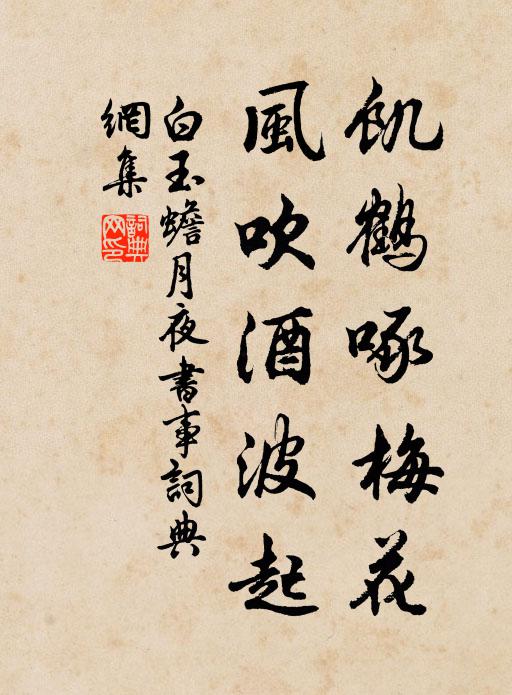 飢鶴啄梅花
風吹酒波起
白玉蟾月夜書事詞典
網集
詞典網印